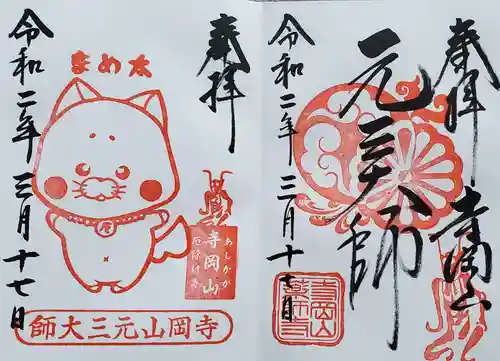 奉拝
まめ太
令和二年三月十七日
寺岡山
あしかが
厄除け寺
寺岡山元三大師
奉拝
寺岡山
元三大師
令和二年三月十七日
寺岡山
薬師寺